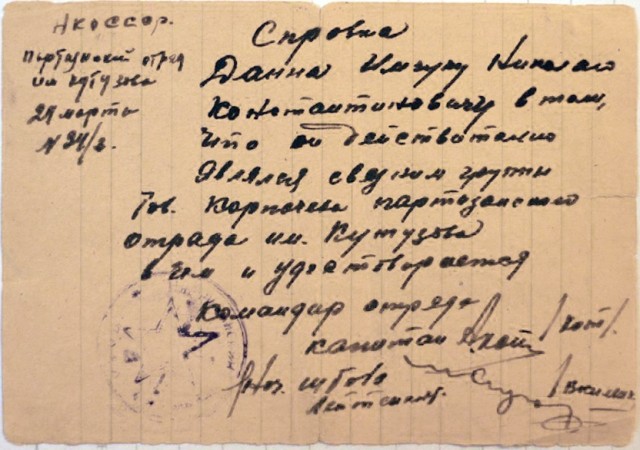 НКОССОР.
Партизанский отряд
им Кутузова
29 марта
N 24/2.
Справка
Данна Николаю
Константиновичу в том,
что он действетельно
являлся связним групты
Тов. Карпачева партозанского
отряда им. Кутузова
в чем и удостоверяется
Командир отряда
капитан
Нач. штаба
Лейтенант.